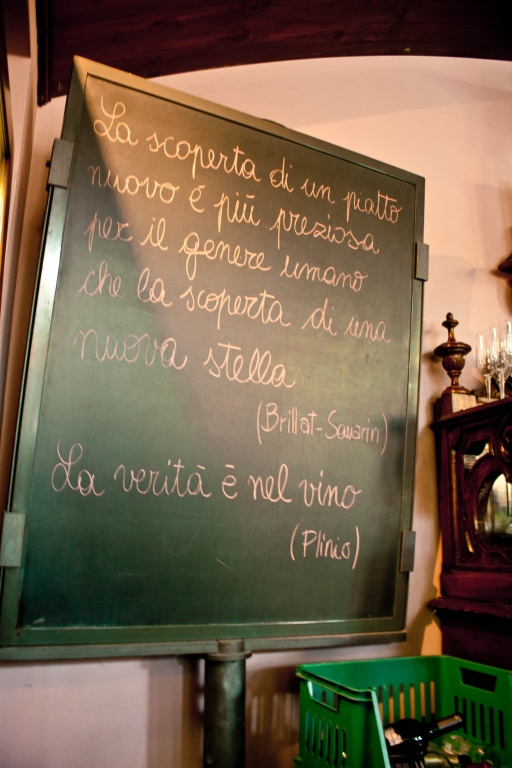 La scoperta di un piatto
nuovo é più preziosa
per il genere umano
che la scoperta di una
nuova stella
(Brillat-Savarin)
La verità è nel vino
(Plinio)